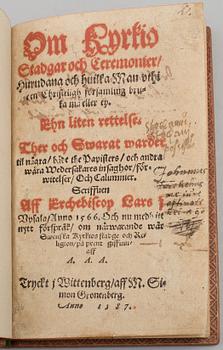 Om Kyrkio
Stadgar och Ceremonier/
Hurudana och huilka Man vthi
een Christligh församling bru-
ka må eller ey.
Ehn liten rettelse.
Ther och Swarat warder
til några/ både the Papisters/ och andra
wåra Wedersakares insaghor/ för-
witelser/ Och Calumnier.
Scriffuen
Aff Erchebiscop Lars i
Vpsala/ Anno 1566. Och nu medh itt
nytt förspråk/ om närwarande wår
Swenska Kyrkios stadge och Re-
ligion/ på prent vthgifuin/
aff
A. A. A.
Tryckt j Wittenberg/ aff M. Si-
mon Gronenberg.
Anno 1587.
Johannes